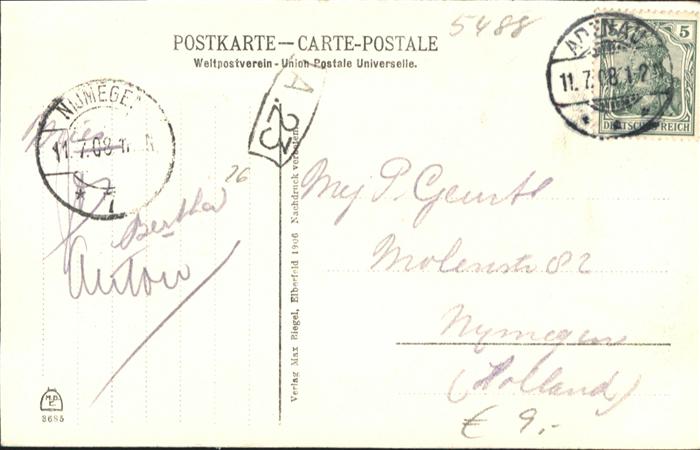 5488
POSTKARTE — CARTE-POSTALE
Weltpostverein - Union Postale Universelle.
ADENAU
11.7.08.1-2N
5
DEUTSCHES REICH
NIJMEGEN
11.7.08
7
A
23
26
Bertha
Anton
Verlag Max Biegel, Elberfeld 1906 Nachdruck verboten
Mej P. Geurts
Molenstr 82
Nymegen
(Holland)
€ 9,-
8685